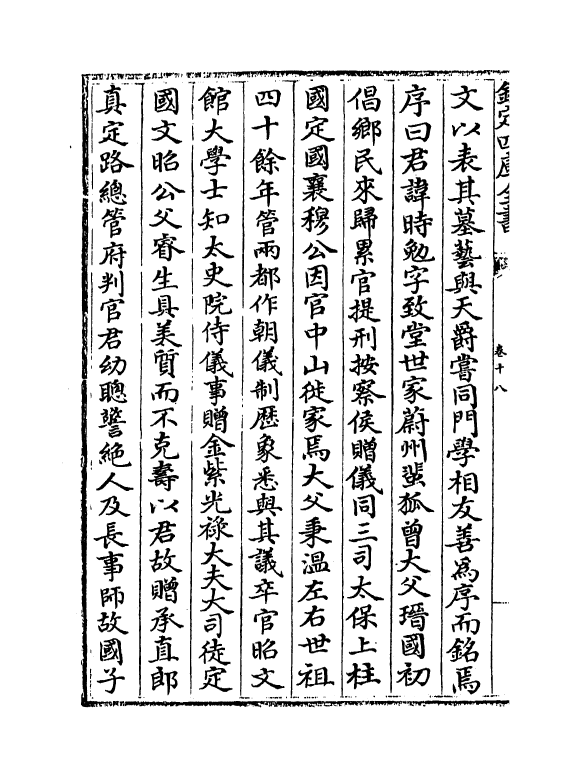 欽定四庫全書
卷十八
文以表其墓藝與天爵嘗同門學相友善為序而銘焉
序曰君諱時勉字致堂世家蔚州蜚狐曾大父瑨國初
倡鄉民來歸累官提刑按察侯贈儀同三司太保上柱
國定國襄穆公因官中山徙家焉大父秉溫左右世祖
四十餘年管兩都作朝儀制歷象悉與其議卒官昭文
館大學士知太史院侍儀事贈金紫光祿大夫大司徒定
國文昭公父睿生具美質而不克壽以君故贈承直郎
真定路總管府判官君幼聰警絕人及長事師故國子